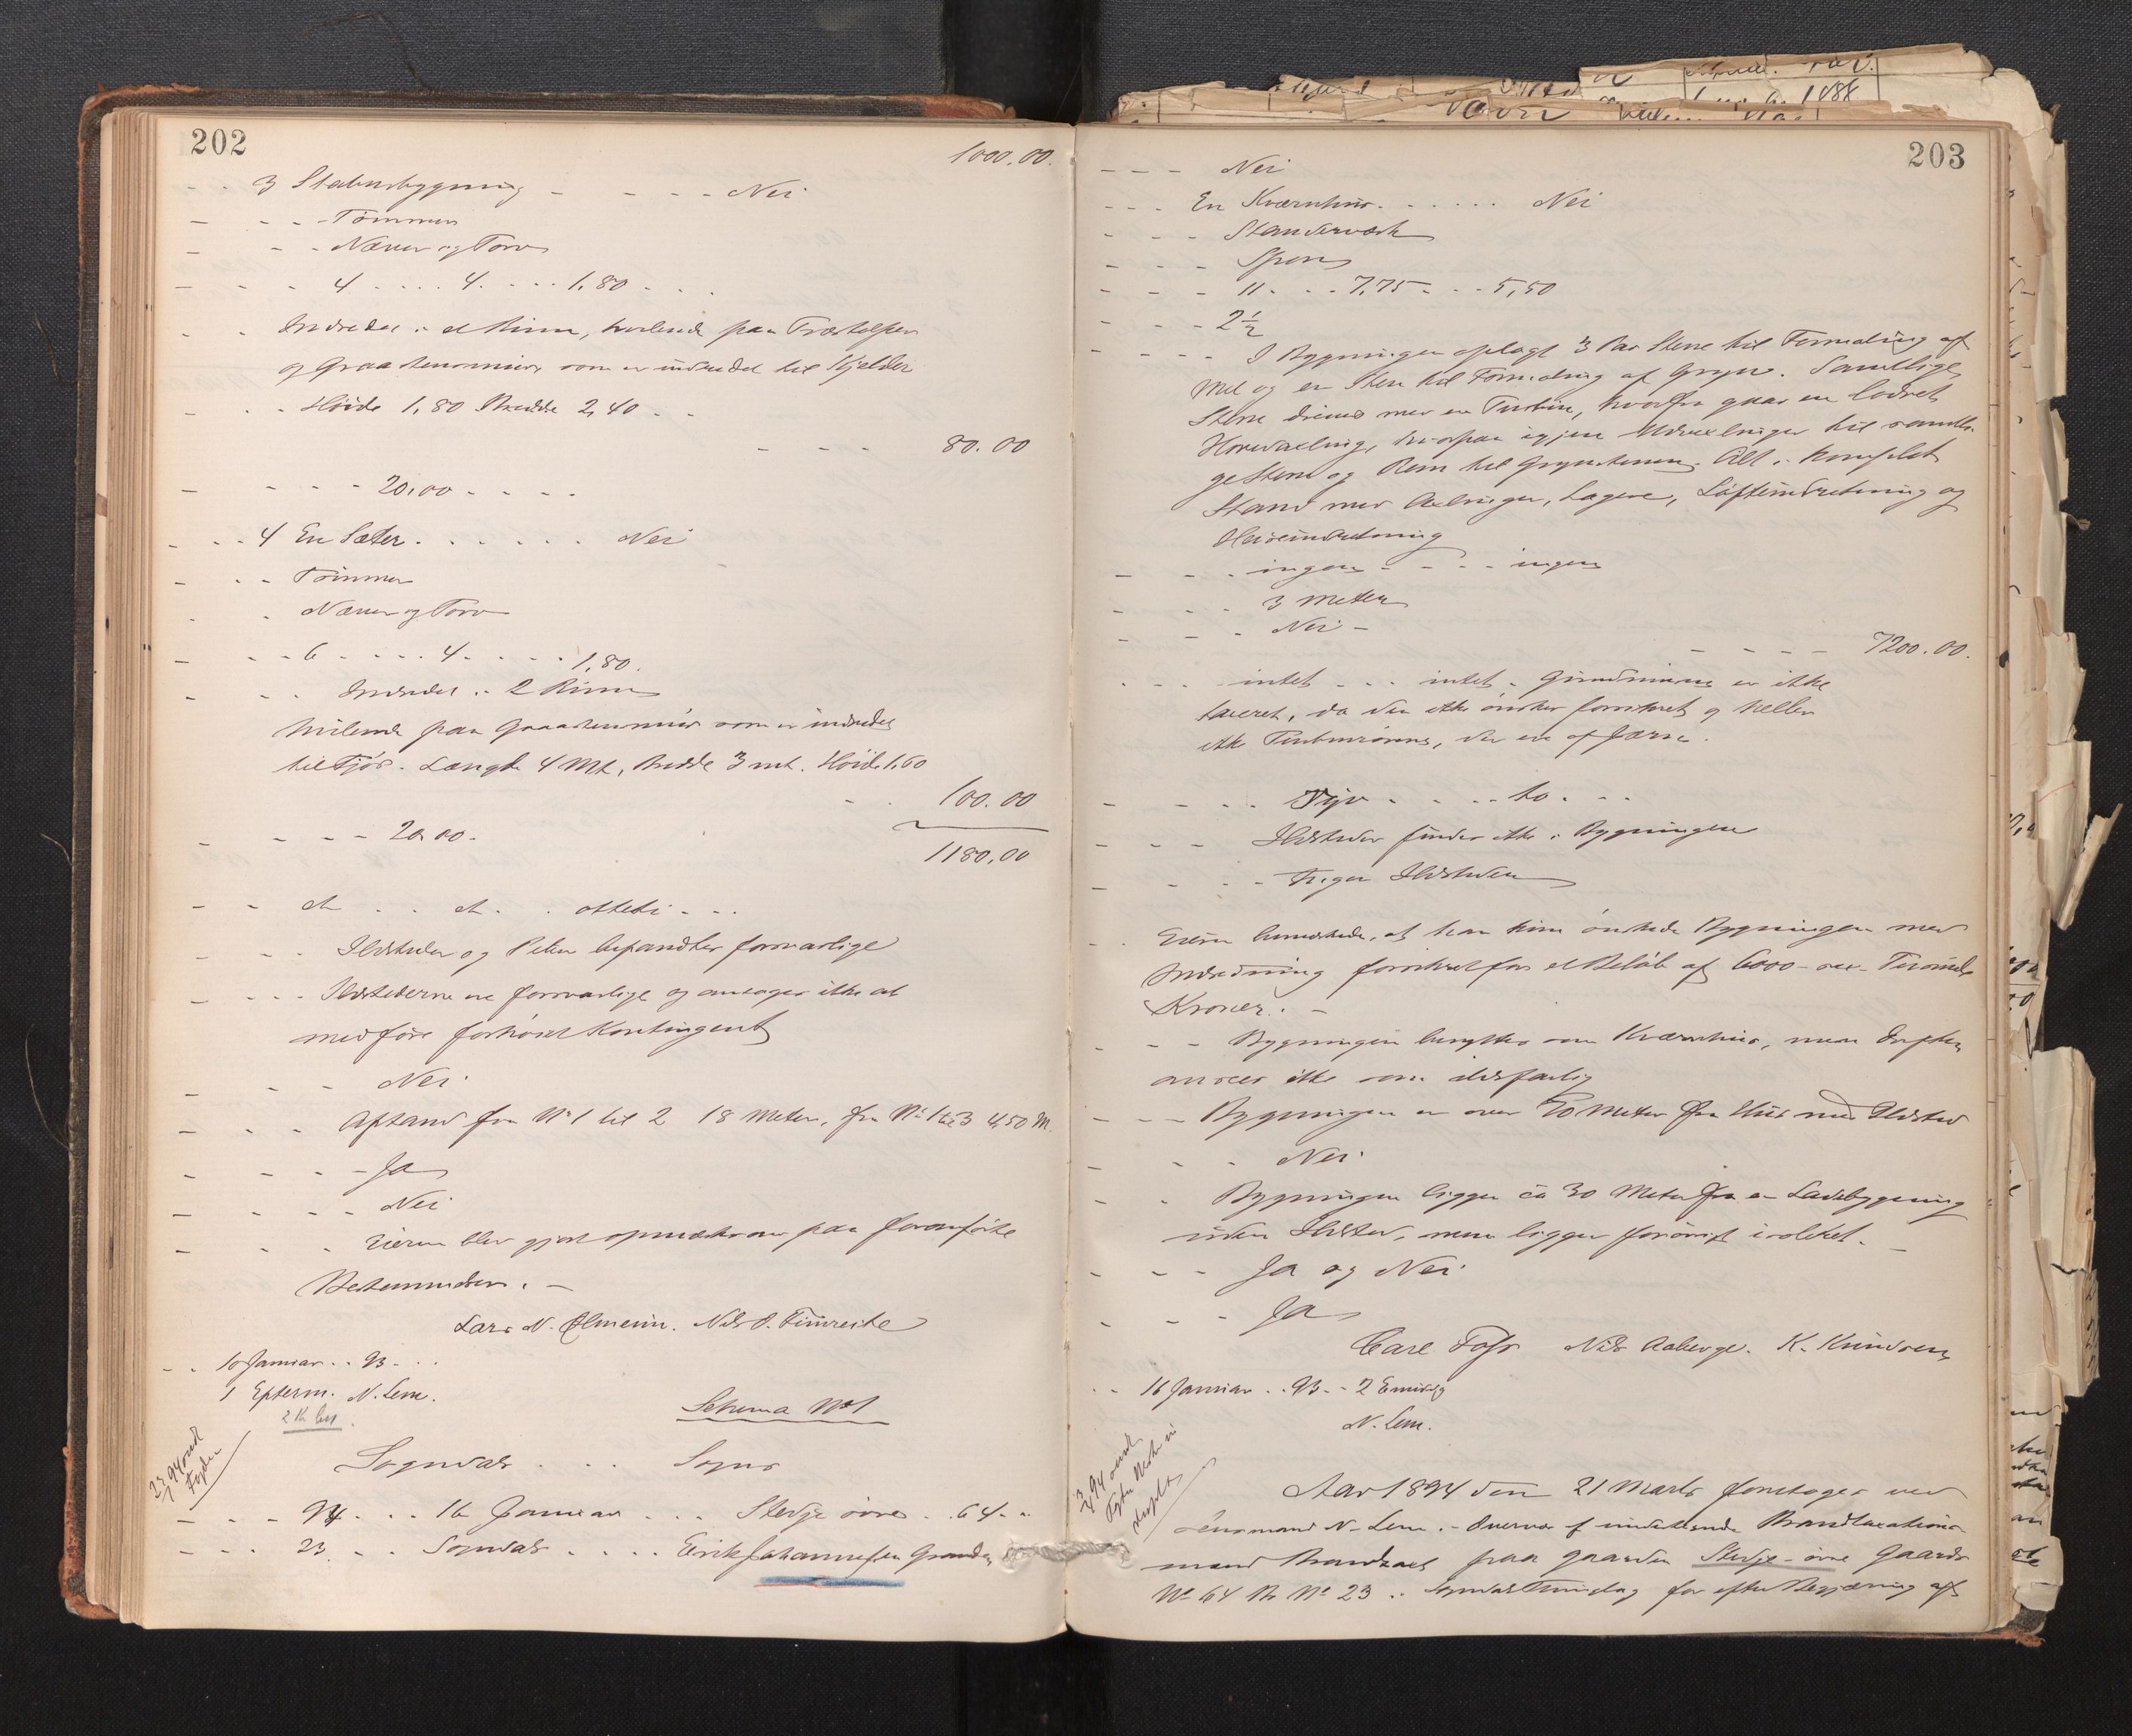 202
1000.00.
- - 3 Stabursbygning - - - - Nei
- - - Tømmer
- - Næver og Torv
- - - 4 . . . . 4. . . . 1,80 - - -
- - Indredet i et Rum, hvilende paa Træstolper
og Graastensmur som er indredet til Kjelder
- - - Høide 1,80 Bredde 2,40 - -
- - - 80.00
- - - - 20,00 - - - -
- - - 4 En Sæter. . . . . . . Nei
- - - Tømmer
- - Næver og Torv
- - - 6 - - - - 4. - - - 1,80.
- - - Indredet i 2 Rum
hvilende paa Graastensmur som er indredet
til Fjøs. Længde 4 Mt, Bredde 3 mt. Høide 1,60
- - 100.00
- - - - 20,00.
1180.00
- - et . . et . . otteti - - -
- - - Ildsteder og Piber befandtes forsvarlige
- - - - Ildstederne er forsvarlige og antages ikke at
medføre forhøiet Kontingent
- - - Nei.
- - - Afstand fra No 1 til 2 18 Meter, fra No 1 til 3 4,50 M.
- - - - Ja
- - - - Nei
- - - Eieren blev gjort opmærksom paa foranførte
Bestemmelser. -
Lars N. Ølmeim. Nils O. Timreite
- - 10 Januar . . 93 - . .
1 Efterm. N. Lem.
2 Kr bet.
Schema No 1
Sogndal . . . Sogns
- - - 94 . . . 16 Januar . . . Stedje øvre . . 64 - -
- - - 23. . . Sogndal . . . . Erik Johannessen Granden
203
- - - - Nei
- - - En Kværnhus. . . . . . Nei
- - - - Standerværk
- - - - Spon
- - - 11 - . . 7,75 - . . 5,50
- - - - 2½
- - - - I Bygningen oplagt 3 Par Stene til Formaling af
Mel og en Sten til Formaling af Gryn. Samtlige
Stene drives med en Turbin, hvorfra gaar en lodret
Hovedaxling, hvorpaa igjen Udvexlinger til samtli-
ge Stene og Rem til Grynstenen. Alt i komplet
Stand med Axlinger, Lagere, Løfteindretning og
Heiseindretning
- - - ingen - - - - ingen
- - - 3 Meter
- - - Nei -
- - - - 7200.00.
- - - intet - - - intet. Grundmuren er ikke
taxeret, da den ikke ønskes forsikret og heller
ikke Turbinrørene, der er af Jærn.
- - - - Syv - - - - to. - -
- - - Ildsteder findes ikke i Bygningen
- - - - Ingen Ildsteder
- - Eieren bemærkede, at han kun ønskede Bygningen med
Indredning forsikret for et Beløb af 6000 - sex - Tusinde
Kroner. -
- - - Bygningen benyttes som Kværnhus, men Driften
ansees ikke som ildsfarlig
- - - Bygningen er over 20 Meter fra Hus med Ildsted
- - - Nei.
- - Bygningen ligger ca 30 Meter fra en Ladebygning
uden Ildsted, men ligger forøvrigt isoleret. -
- - - Ja og Nei.
- - - Ja
Carl Foss Nils Aaberge. K. Knudsen
- - 16 Januar . . 93 - - 2
N. Lem.
Aar 1894 den 21 Marts foretoges ved
Lensmand N. Lem. - Overvær af undertegnede Brandtaxations-
mænd Brandtaxt paa Gaarden Stedje - øvre Gaards
No 64 Br No 23 i Sogndal Thinglag for efter Begjæring af